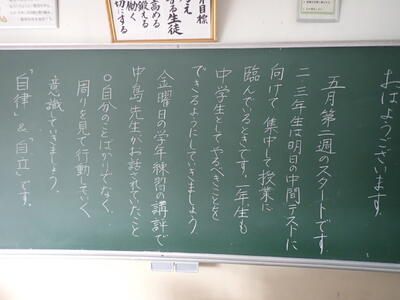 おはようございます。
五月第二週のスタートです。
二・三年生は明日の中間テストに
向けて集中して授業に
臨んでいるときです。一年生も
中学生としてやるべきことを
できるようにしていきましょう。
金曜日の学年練習の講評で
中島先生がお話されていたこと
○自分のことばかりでなく、
周りを見て行動していく
意識していきましょう。
「自律」&「自立」です。
月目標
生徒
高める
鍛える
働く
切にする